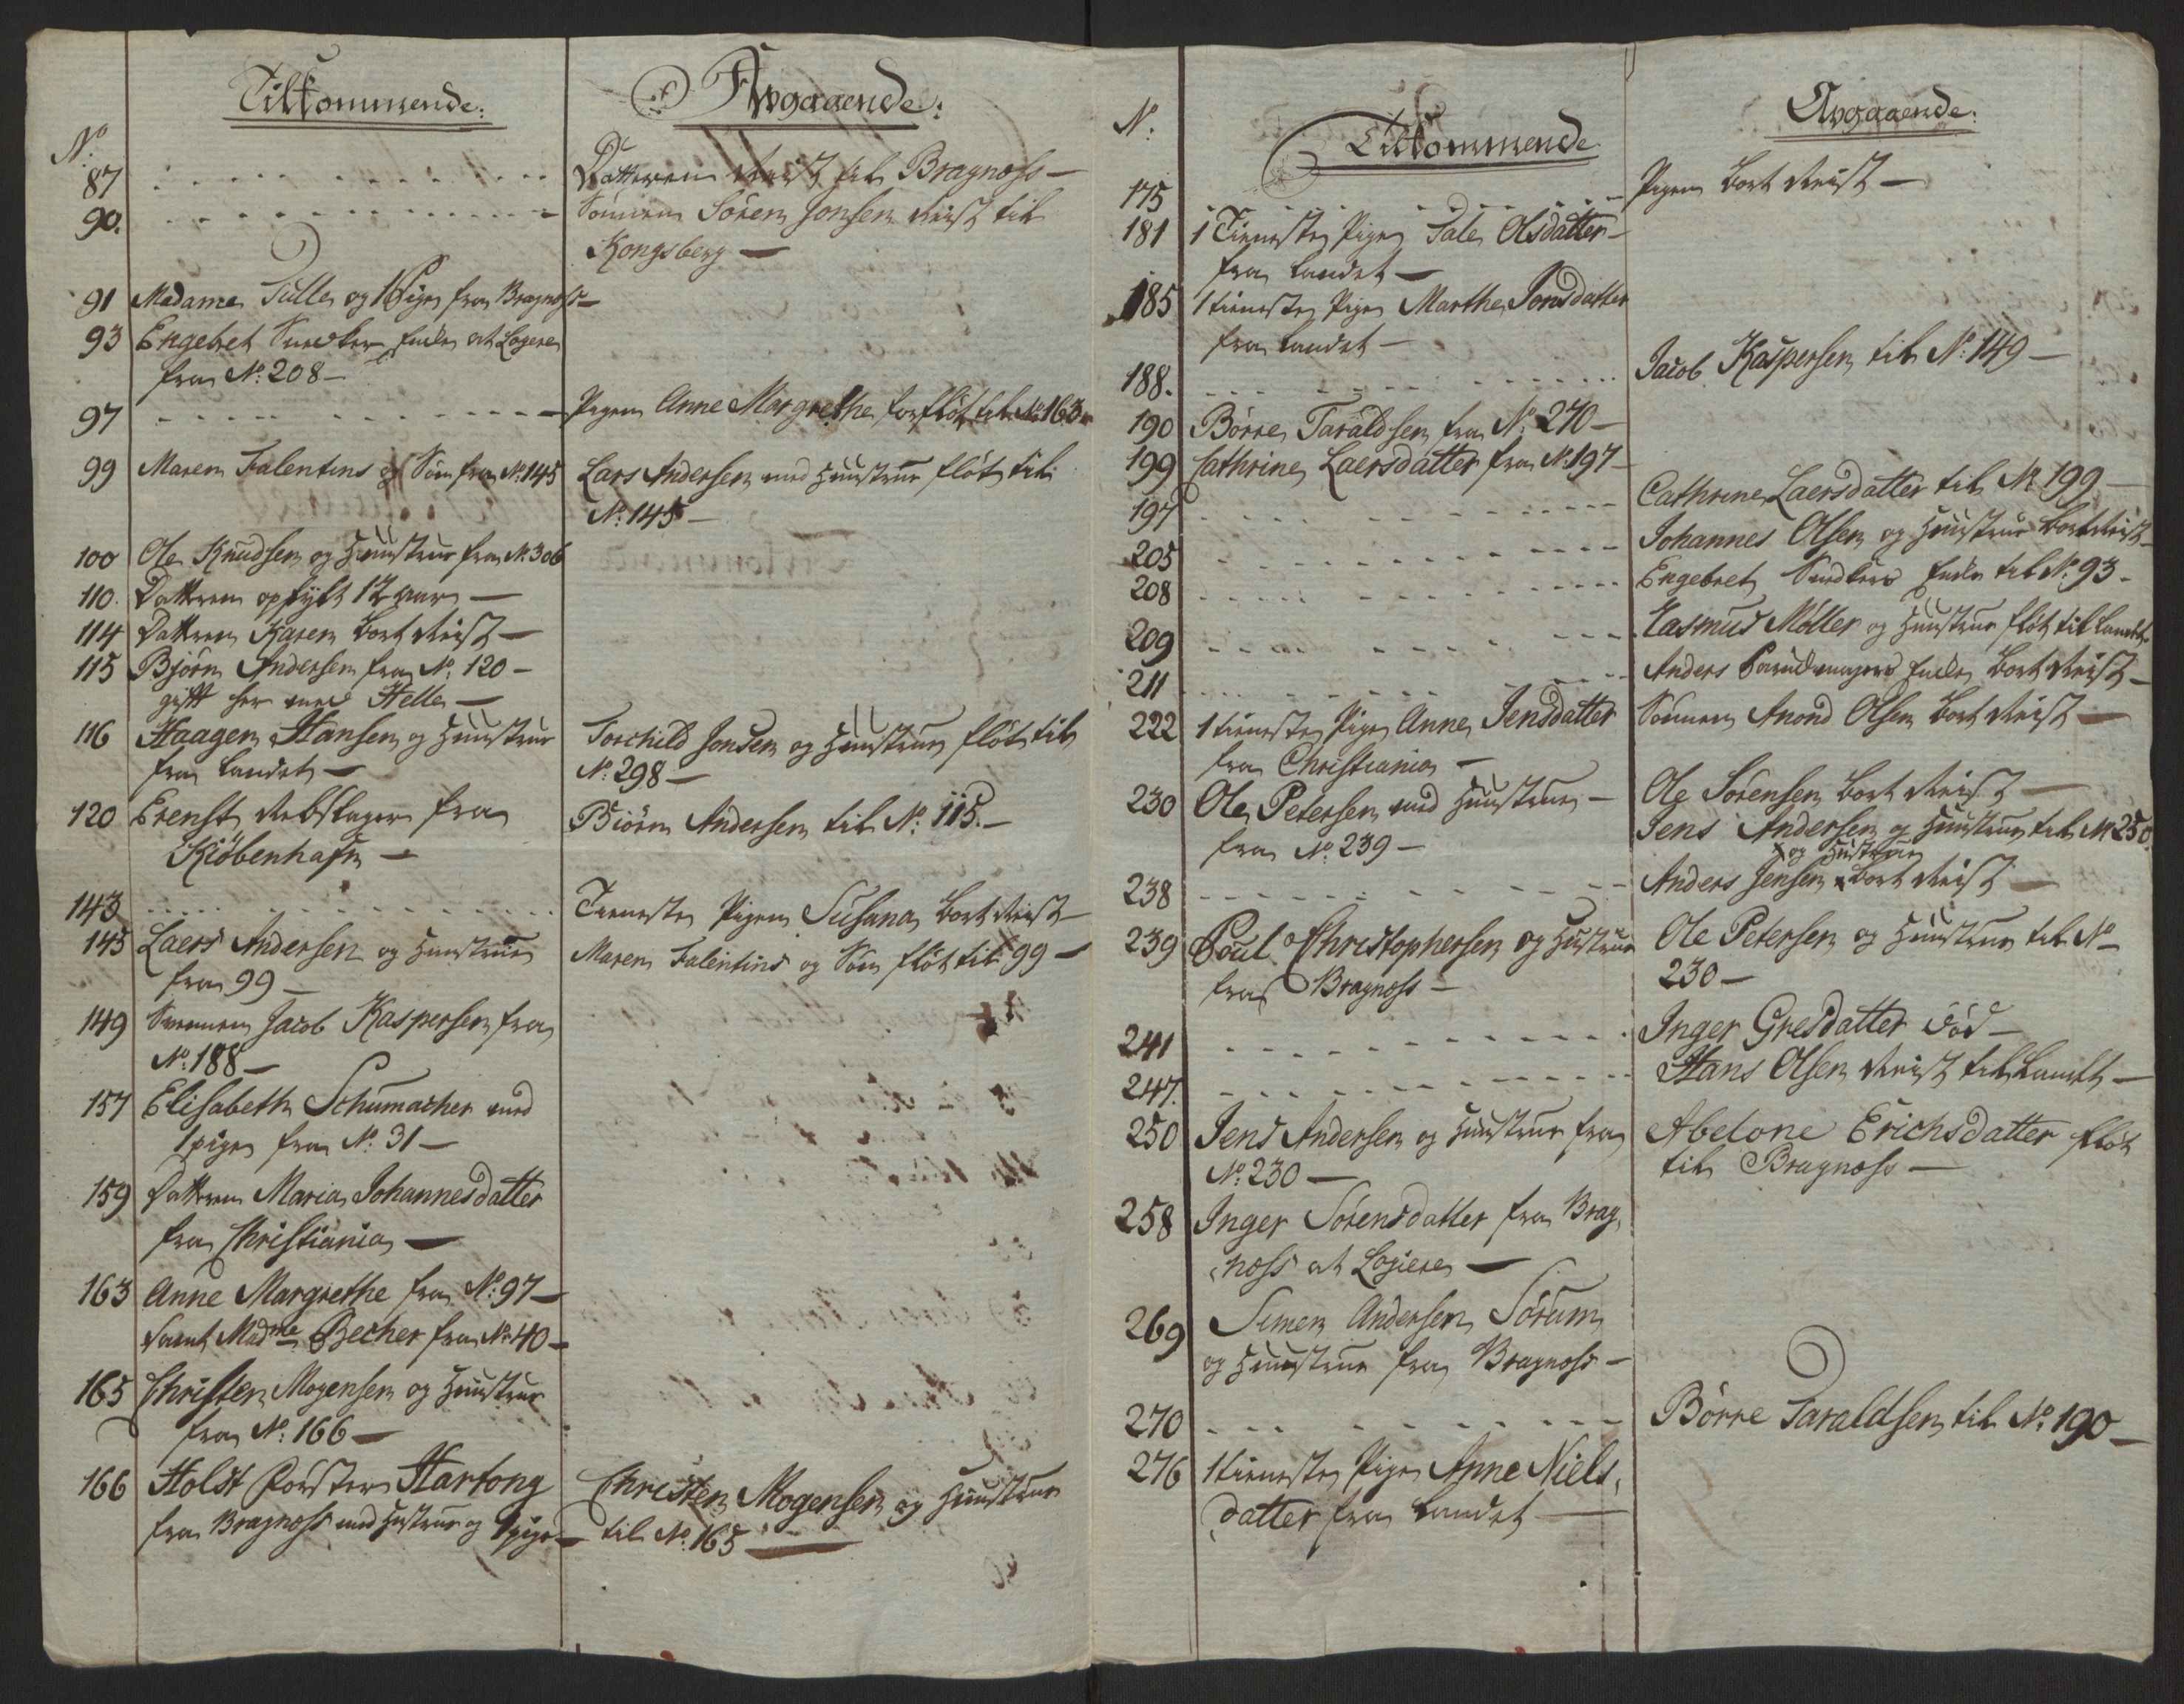 Tilkommende:
Avgaaende:
No
87 Datteren reist til Bragness —
90. Sönnen Sören Jonsen reist til
Kongsberg —
91 Madame Tulle og 1 Pige fra Bragness —
93 Engebret Snedker Enke at Logere
fra No: 208 —
97 Pigen Anne Margrethe forflöt til No 163
99 Maren Falentins og Sön fra No: 145
Lars Andersen med Huustrue flöt til
No: 145 —
100 Ole Knudsen og Huustrue fra No 306
110. Datteren opfylt 12 aar —
114 Datteren Karen bort Reist —
115 Bjórn Andersen fra No: 120 —
gift her med Helle —
116 Haagen Hansen og Huustrue
fra Landet —
Torchild Jonsen og Huustrue flöt til
No: 298 —
120 Erenst Rebslager fra
Kiöbenhafn —
Biörn Andersen til No: 115. —
143 Tieneste Pigen Susana bort Reist
145 Laers Andersen og Huustrue
fra 99 —
Maren Falentins og Sön flöt til 99 —
149 Svennen Jacob Kaspersen fra
No: 188 —
157 Elisabeth Schumacher med
1 pige fra No: 31 —
159 Datteren Maria Johannesdatter
fra Christiania —
163 Anne Margrethe fra No: 97 —
samt Madme Becher fra No 40 —
165 Christen Mogensen og Huustrue
fra No: 166 —
166 Holst Förster Hartong
fra Bragness med Hustrue og 1 pige —
Christen Mogensen og Huustrue
til No: 165 —
No:
Tilkommende
Avgaaende:
175 Pigen bort Reist —
181 1 Tieneste Pige Sale Olsdatter —
fra Landet —
185 1 tieneste Pige Marthe Jonsdatter
fra Landet —
188. Jacob Kaspersen til No: 149 —
190 Börre Taraldsen fra No: 270 —
199 Cathrine Laersdatter fra No: 197 —
197 Cathrine Laersdatter til No 199 —
205 Johannes Olsen og Huustrue bort Reist
208 Engebret Snedkers Enke til No: 93 —
209 Rasmus Möller og Huustrue flöt til Landet
211 Anders Parukmagers Enke bort Reist —
222 1 tieneste Pige Anne Jensdatter
fra Christiania —
Sönnen Anond Olsen bort Reist —
230 Ole Petersen med Huustrue —
fra No: 239 —
Ole Sörensen bort Reist —
Jens Andersen og Huustrue til No 250.
x og Hustrue
238 Anders Jensen x bort Reist —
239 Poul Christophersen og Hustrue
fra Bragness —
Ole Petersen og Huustrue til No
230 —
241 Inger Gresdatter död —
247. Hans Olsen Reist til Landet —
250 Jens Andersen og Huustrue fra
No: 230 —
Abelone Erichsdatter flöt
til Bragness —
258 Inger Sörensdatter fra Brag,
ness at Logiere —
269 Simen Andersen Sörum
og Huustrue fra Bragness —
270 Börre Taraldsen til No: 190 —
276 1 tieneste Pige Anne Niels,
datter fra Landet —